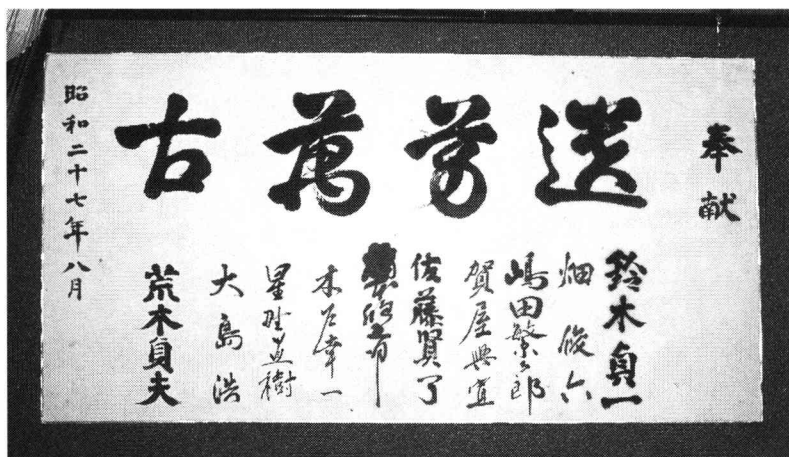 奉献
遺芳萬古
鈴木貞一
畑俊六
嶋田繁太郎
賀屋興宣
佐藤賢了
木戸幸一
星野直樹
大島浩
荒木貞夫
昭和二十七年八月